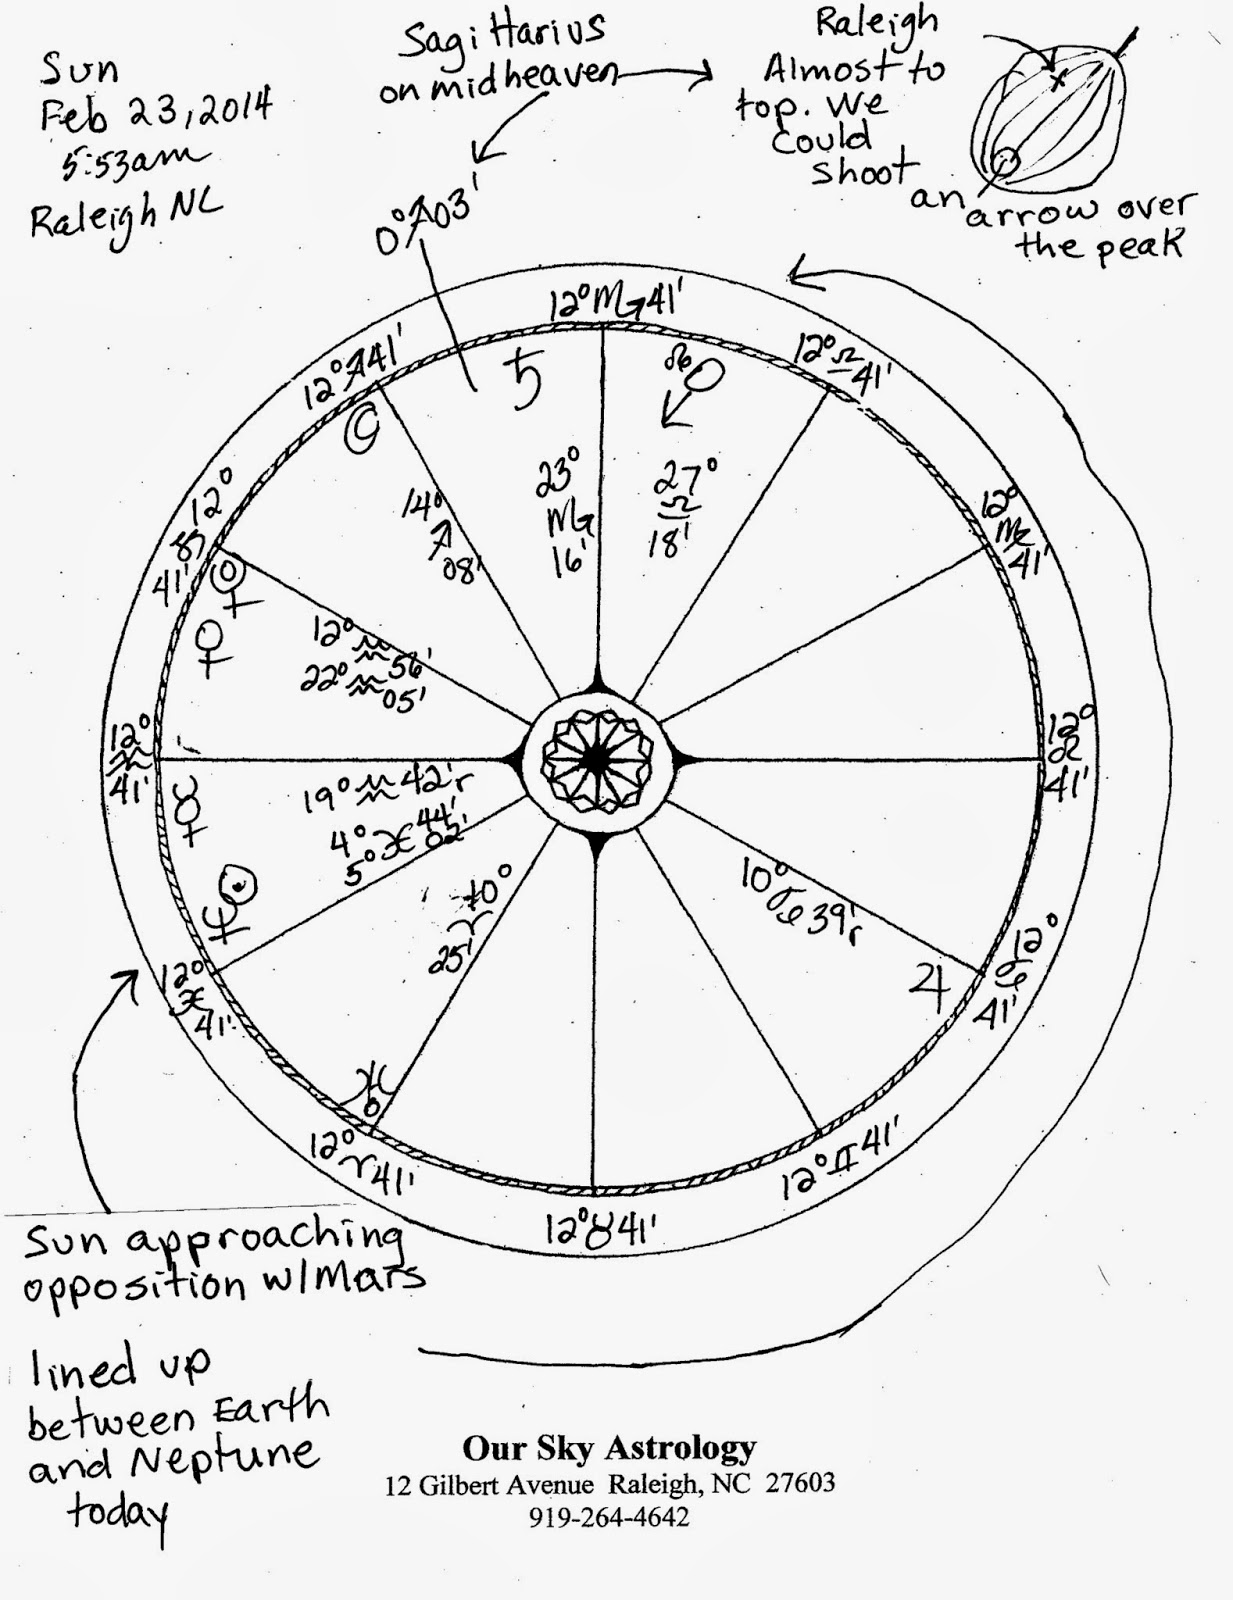 Sun
Feb 23, 2014
5:53am
Raleigh NC
Sagittarius
on midheaven
0°♐03'
Raleigh
Almost to
top. We
could
shoot
an arrow over
the peak
12°♏41'
12°♎41'
12°♍41'
12°♌41'
12°♋41'
12°♊41'
12°♉41'
12°♈41'
12°♓41'
12°♒41'
12°♑41'
12°♐41'
♄
23°
♏
16'
27°
♎
18'
14°
♐
08'
12°♒56'
22°♒05'
♀
☿
19°♒42'r
4°♓44'
5°♓02'
☉
♆
10°
♈
25'
♅
10°♋39'r
♃
Sun approaching
opposition w/Mars
lined up
between Earth
and Neptune
today
Our Sky Astrology
12 Gilbert Avenue Raleigh, NC 27603
919-264-4642